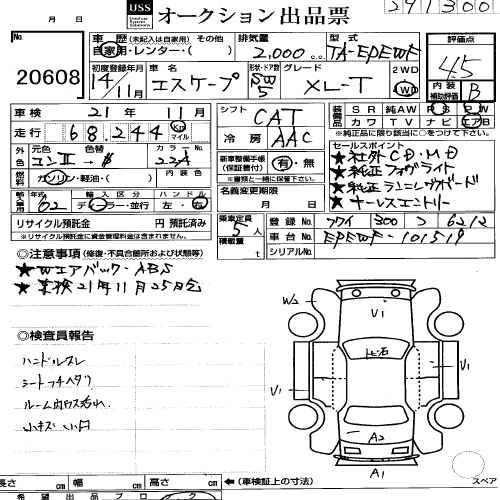 USS オークション出品票
No.
20608
月 日
車歴 (未記入は自家用) その他
自家用・レンター・( )
排気量
2,000
型式
TA-EPEWF
評価点
4.5
初度登録年月
14年11月
車名
エスケープ
形状・ドア数
SW 5
グレード
XL-T
2WD
4WD
内装
補助評価
B
車検 21年11月
走行 68,244 Km マイル
外色 元色 色替 カラーNo.
コンⅡ→ 22A
燃料 ガソリン・軽油・( ) 内装色
輸入車用 年式 02 輸入区分 ディーラー・並行 ハンドル 左・右
リサイクル預託金 円 預託済み
※リサイクル預託金に資金管理料金は含まれません。
シフト CAT
冷房 AAC
新車整備手帳(保証書付) 有・無
名義変更期限
月 日
装備品 SR 純AW PS PW
カワ TV ナビ エアB
※純正品に限り該当に○をつけて下さい
セールスポイント
★社外CD・MD
★純正フォグライト
★純正ランニングボード
★キーレスエントリー
乗車定員 5人
積載量 t
登録No. フクイ 300 6212
車台No. EPEWF-101519
シリアルNo.
◎注意事項(修復・不具合箇所および状態等)
★Wエアバック・ABS
★車検21年11月25日迄
◎検査員報告
ハンドルスレ
シートコゲヘタリ
ルーム内ウス汚れ
小キズ 凹
W2
V1
V1
V1
A2
A1
長さ cm 幅 cm 高さ cm ←(車検証上の寸法)
スペア